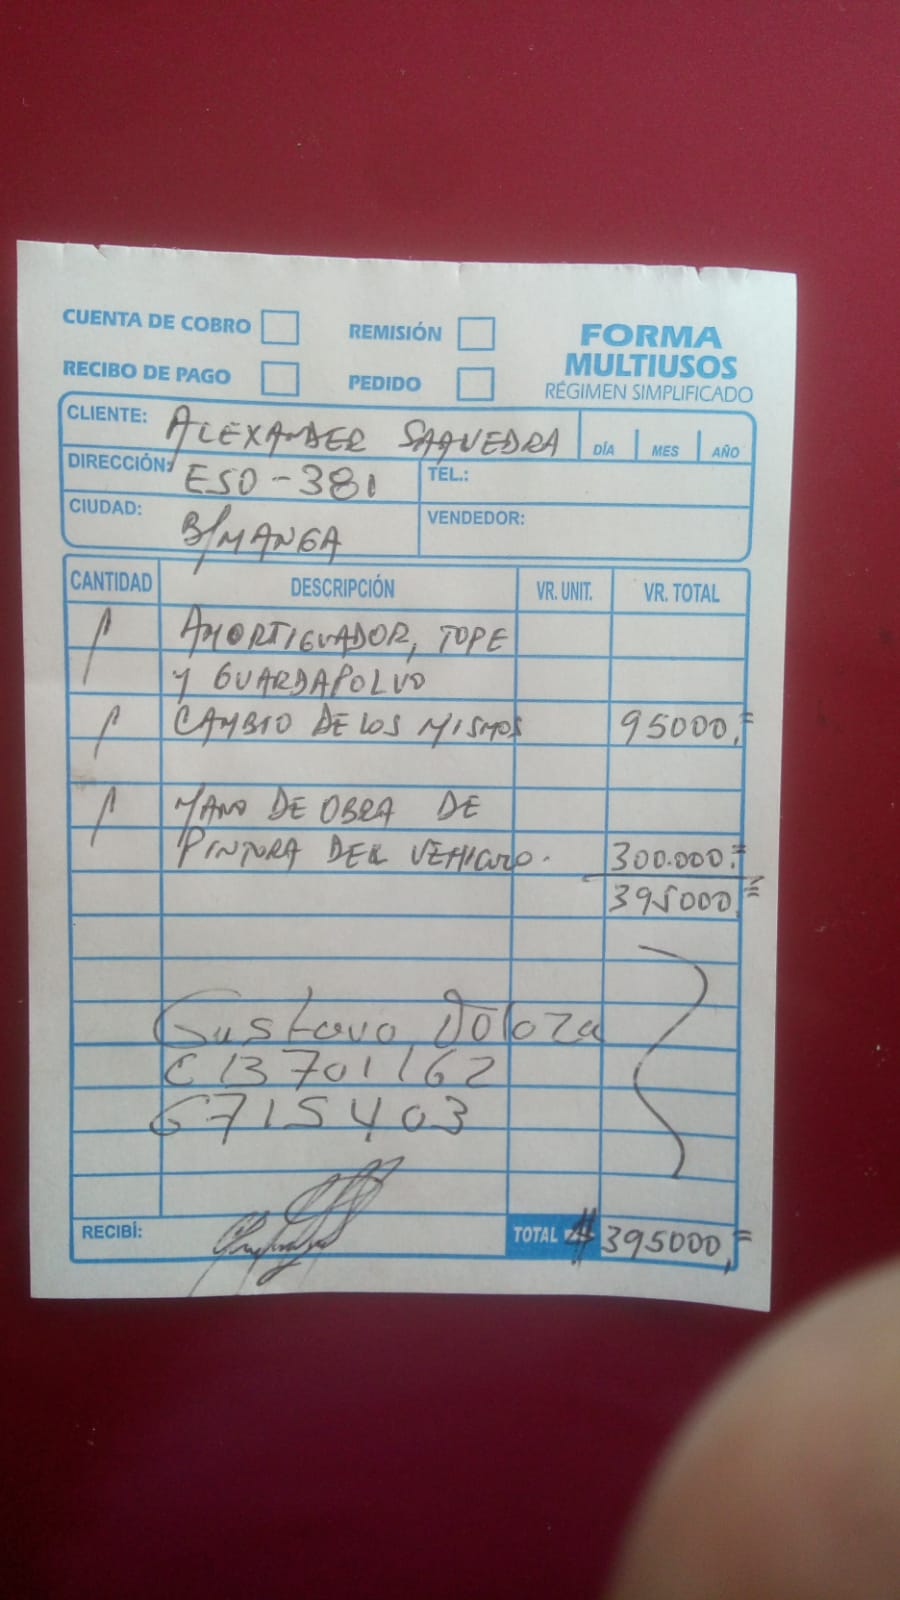 CUENTA DE COBRO REMISIÓN FORMA
MULTIUSOS
RECIBO DE PAGO PEDIDO RÉGIMEN SIMPLIFICADO
CLIENTE: ALEXANDER SAAVEDRA DÍA MES AÑO
DIRECCIÓN: ESO-381 TEL.:
CIUDAD: B/MANGA VENDEDOR:
CANTIDAD DESCRIPCIÓN VR. UNIT. VR. TOTAL
1 AMORTIGUADOR, TOPE
Y GUARDAPOLVO
1 CAMBIO DE LOS MISMOS 95000,=
1 MANO DE OBRA DE
PINTURA DEL VEHICULO. 300.000.=
395000,=
Gustavo
C 13701162
6715403
RECIBÍ: TOTAL $ 395000,=